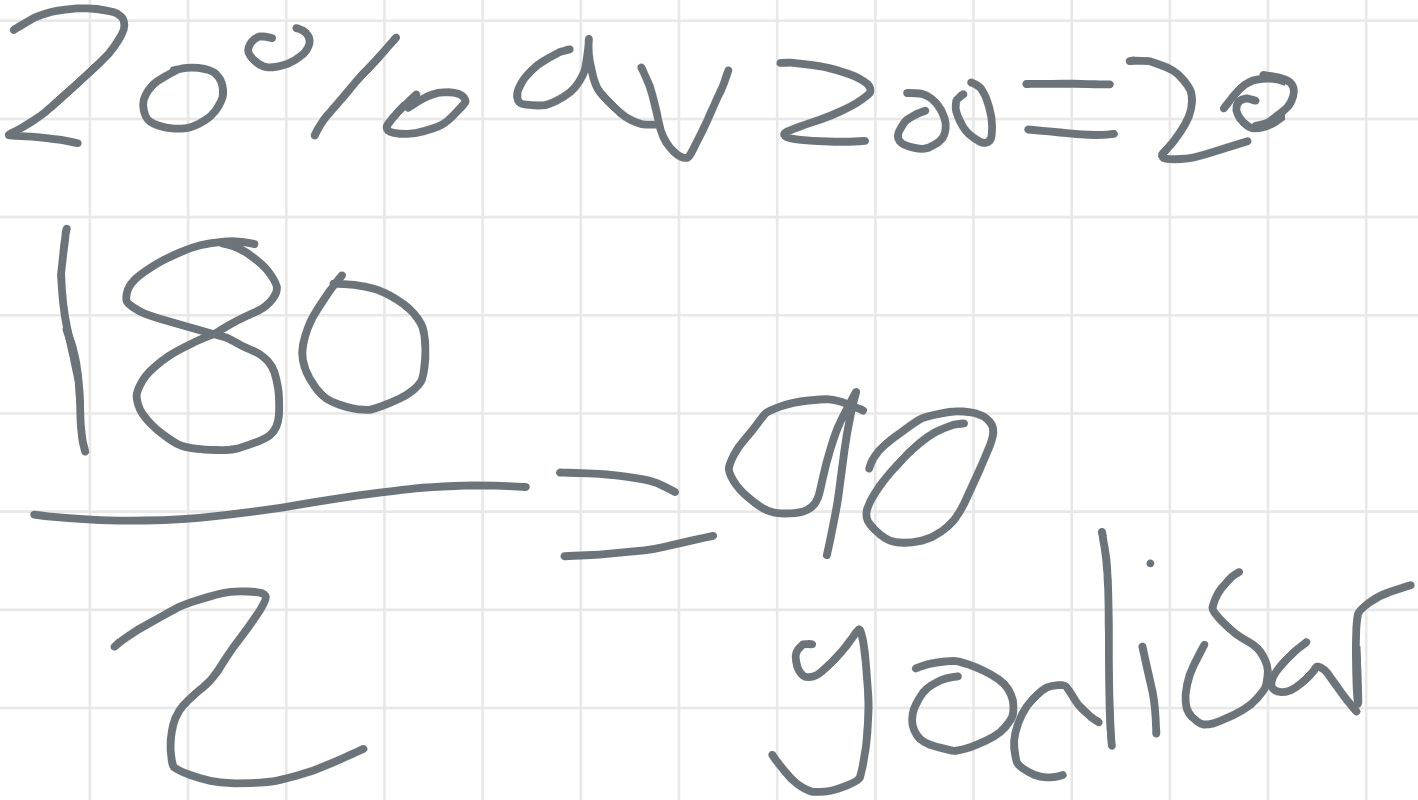 20% av 200 = 20
180
= 90
2
godisar